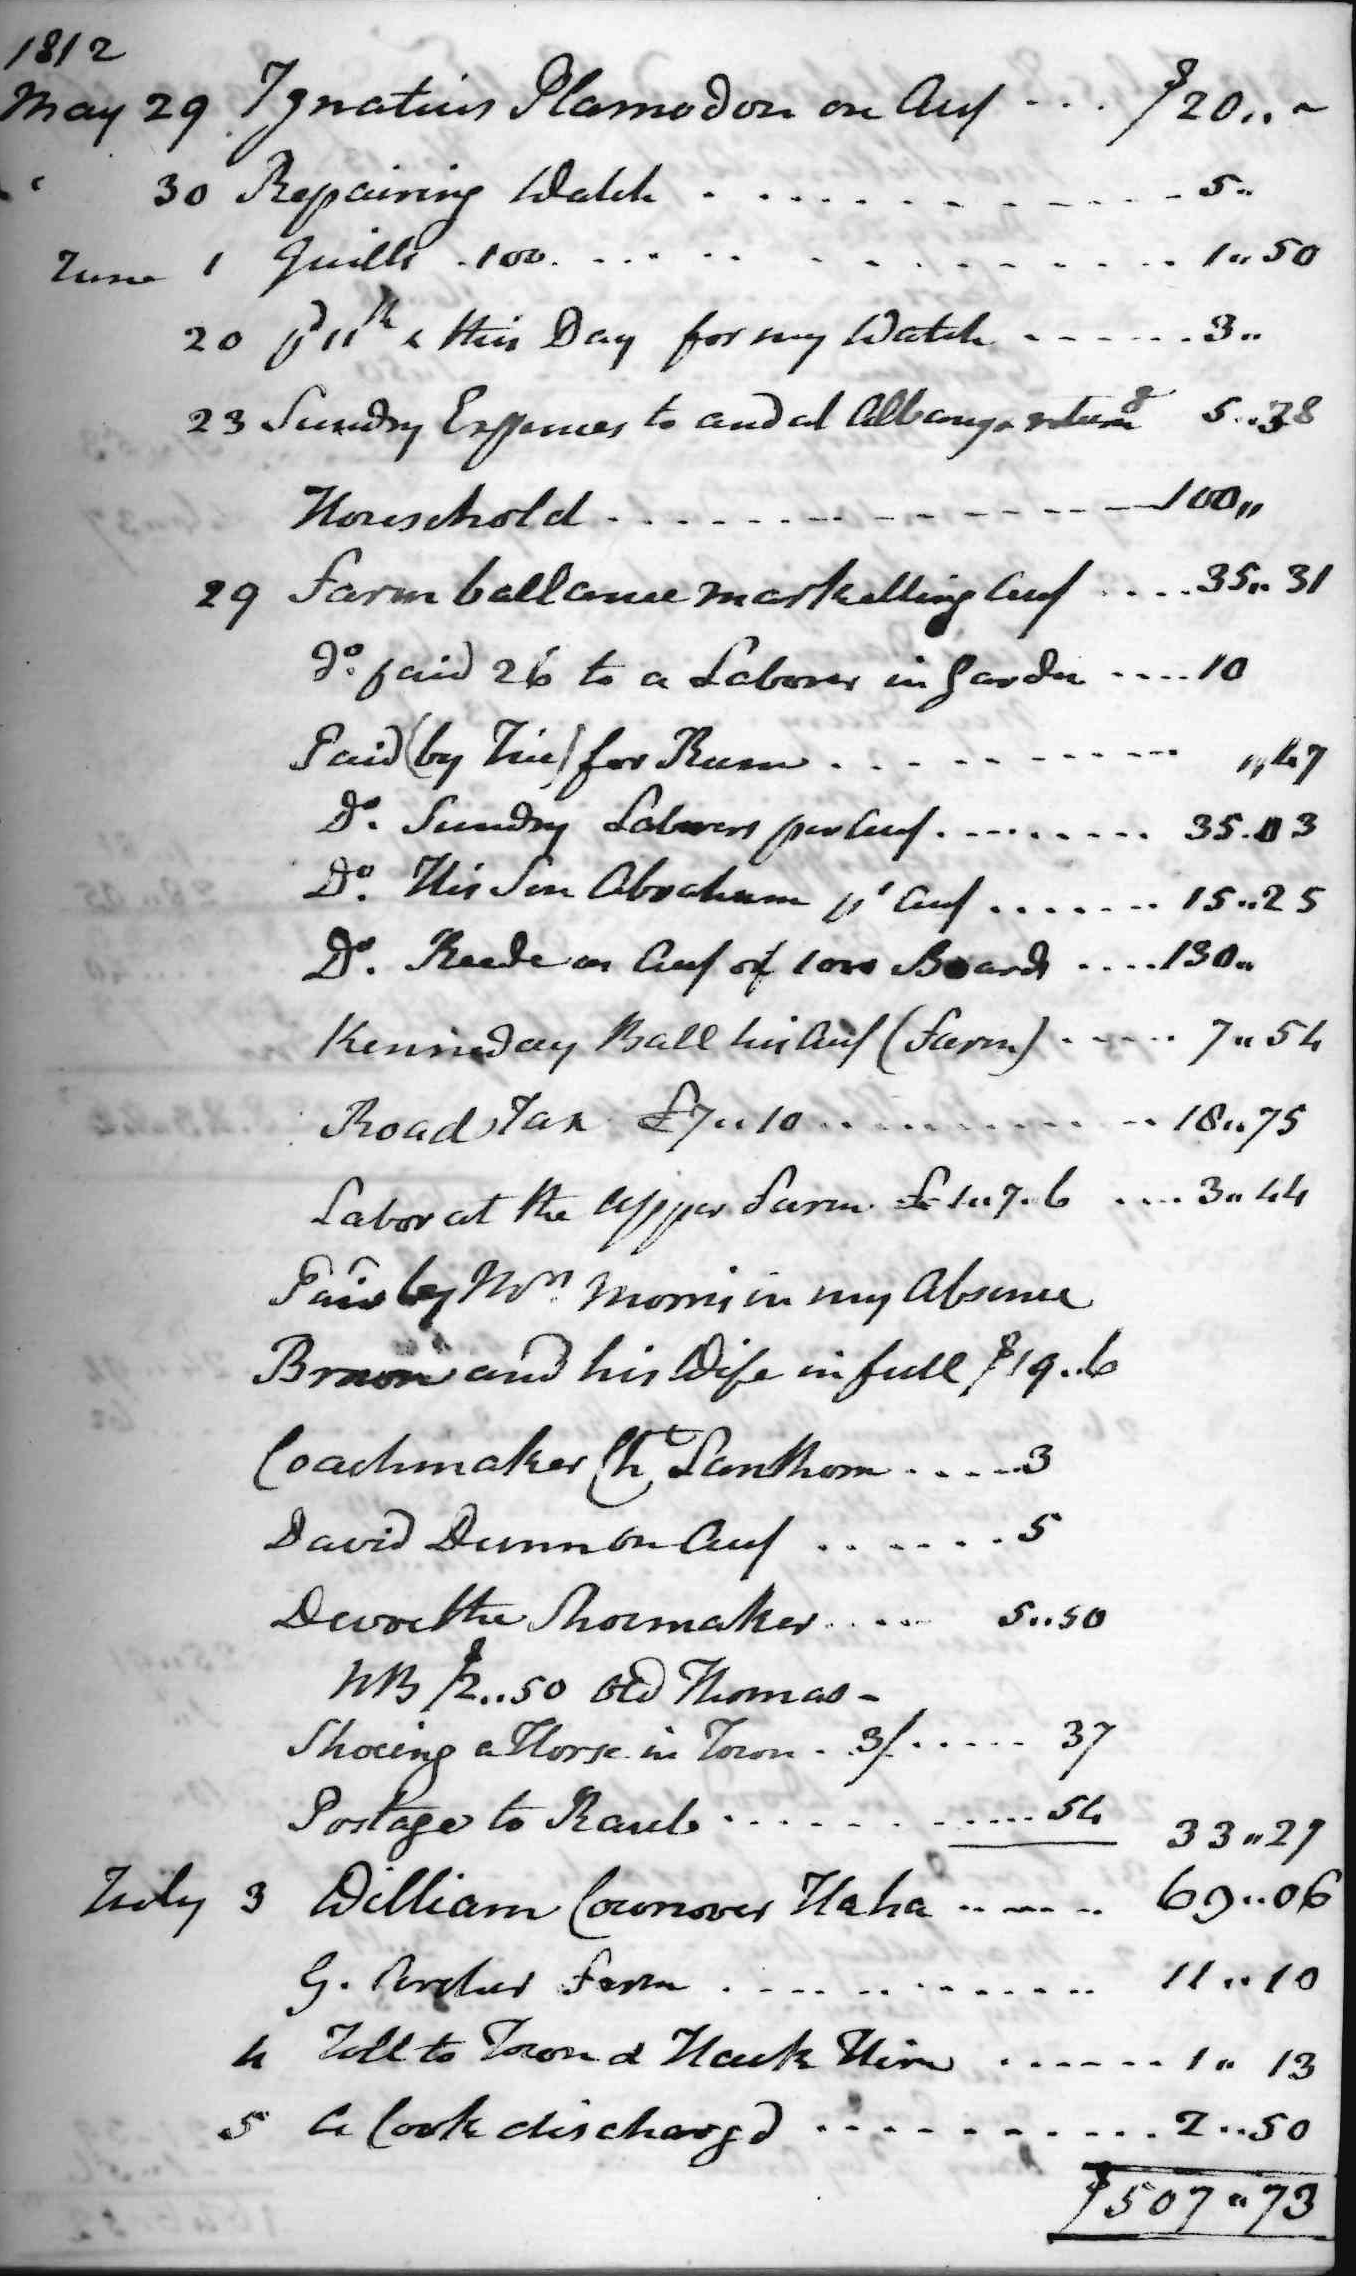 1812
May 29 Ignatius Plamodon on Acct $20..~
" 30 Repairing Watch 5..
June 1 Quills 100 1..50
20 pd 11th & this Day for my Watch 3..
23 Sundry Expences to and at Albany & returng 5..38
Household 100,,
29 Farm ballance markelling Acct 35..31
Do. paid 26 to a Laborer in Garden 10
Paid (by Tice) for Rum ,,47
Do. Sundry Laborers per Acct 35.03
Do. His Son Abraham pr Acct 15..25
Do. Reede on Acct of 1000 Boards 130..
Kenneday Ball his Acct (Farm) 7..54
Road Tax £7..10 18..75
Labor at the upper Farm £1..7.6 3..44
Paid by Mrs. Morris in my Absence
Brown and his Wife in full $19..6
Coachmaker Cht Lanthorn 3
David Dunn on Acct 5
Devoe the Shoemaker 5..50
NB $2..50 old Thomas -
Shoeing a Horse in Town . 3/ 37
Postage to 54 33..27
July 3 William Cownover Haha 69..06
G. Archer Farm 11..10
4 Toll to Town & Hack Hire 1.. 13
5 A Cook dischargd 2..50
$507..73